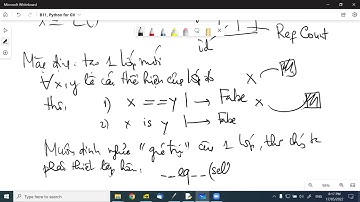 Microsoft Whiteboard
B11, Python for GV
id
Ref Count
Mặc định: tạo 1 lớp mới
∀x,y là cá thể hiện của lớp đó
x
thì: 1) x == y | → False x
2) x is y | → False
Muốn định nghĩa "giá trị" của 1 lớp, thì
phải thiết lập hàm: __eq__(sel